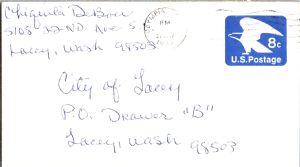 5103 22ND Ave S
Lacey, Wash 98503
PM
8c
U.S. Postage
City of Lacey
P.O. Drawer "B"
Lacey, Wash 98503